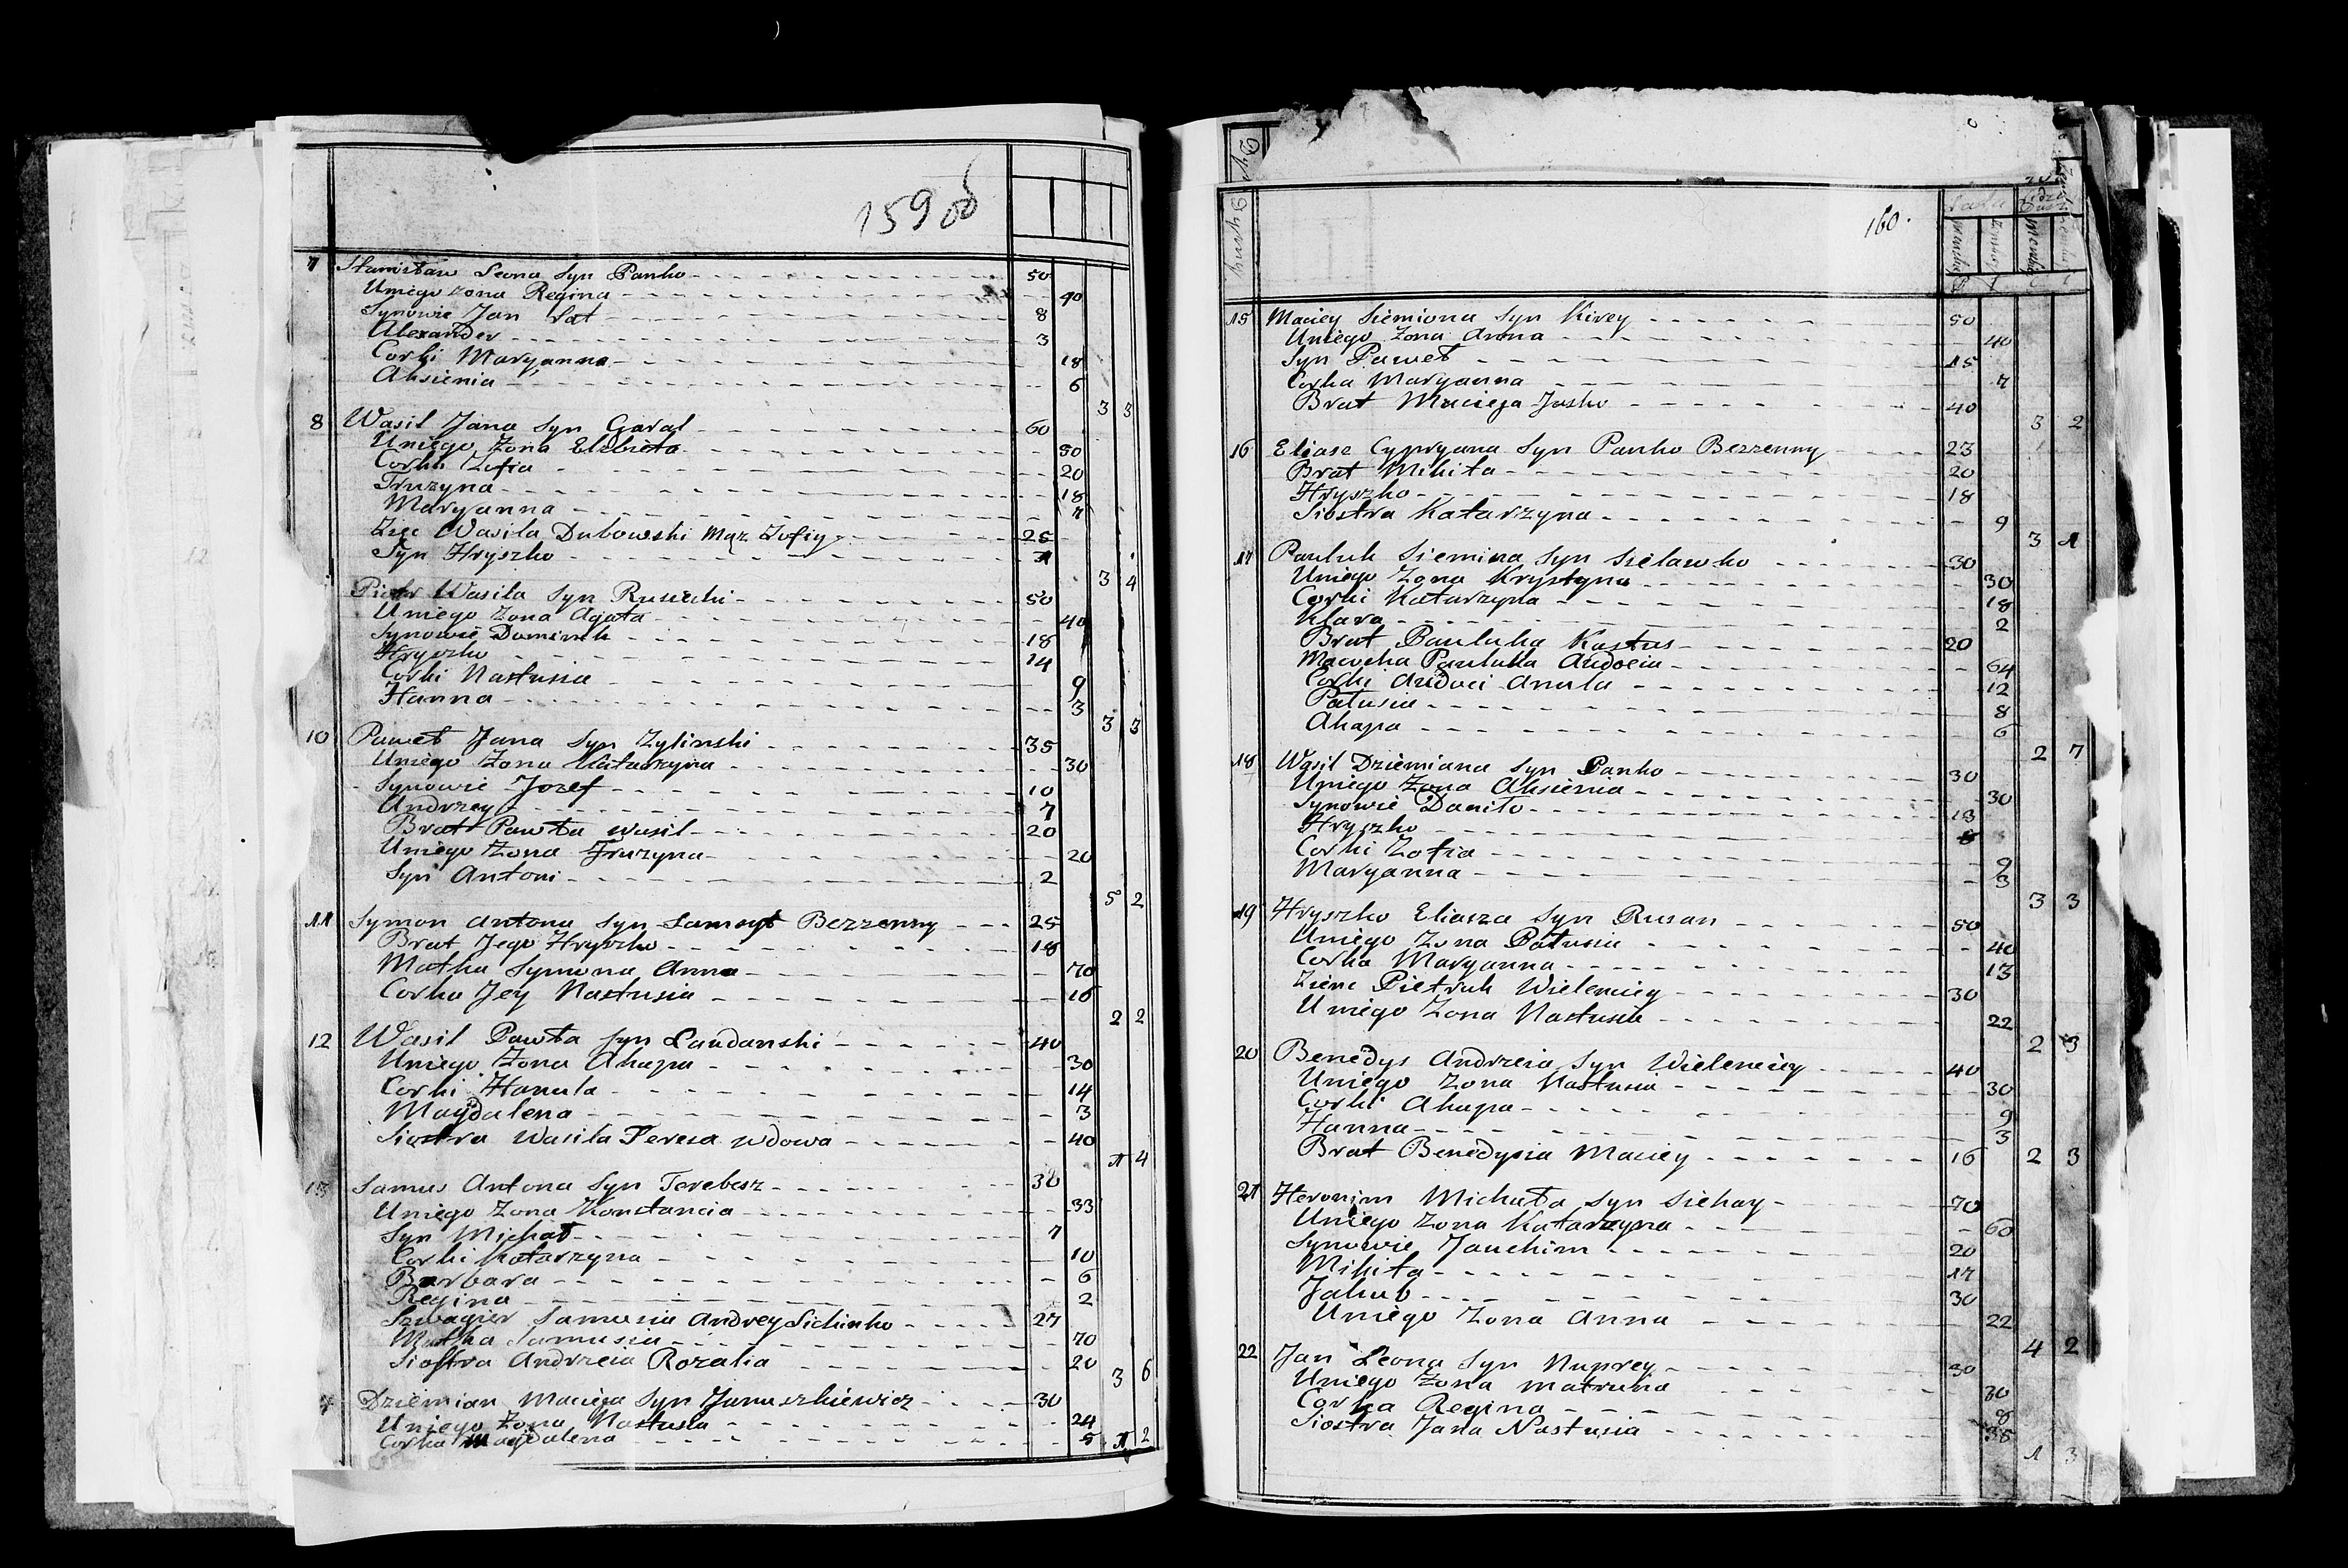 159 об
7 Stanisław Leona Syn Panko 50
Uniego zona Regina 40
Synowie Jan Lat 8
Alexander 3
Corki Maryanna 18
Aksienia 6
3 3
8 Wasil Jana Syn Garal 60
Uniego Zona Elzbieta 50
Corki Zofia 20
Fruzyna 18
Maryanna 7
Zięc Wasila Dubowski Mąz Zofiy 25
Syn Hryszko 1
3 4
Piotr Wasila Syn Rusiecki 50
Uniego Zona Agata 40
Synowie Dominik 18
Hryszko 14
Corki Nastusia 9
Hanna 3
3 3
10 Paweł Jana Syn Zylinski 35
Uniego Zona Katarzyna 30
Synowie Jozef 10
Andrzey 7
Brat Pawła Wasil 20
Uniego Zona Fruzyna 20
Syn Antoni 2
5 2
11 Symon Antona Syn Samoył Bezzenny 25
Brat Jego Hryszko 18
Matka Symona Anna 70
Corka Jey Nastusia 16
2 2
12 Wasil Pawła Syn Laudanski 40
Uniego Zona Ahapa 30
Corki Hanula 14
Magdalena 3
Siostra Wasila Teresa wdowa 40
1 4
13 Samus Antona Syn Terebesz 38
Uniego Zona Konstancia 33
Syn Michał 7
Corki Katarzyna 10
Barbara 6
Regina 2
Szwagier Samusia Andrey Sichinko 27
Matka Samusia 70
Siostra Andrzeia Rozalia 20
3 6
Dziemian Macieja Syn Januszkiewicz 30
Uniego Zona Nastusia 24
Corka Magdalena 5 1 2
160.
Lata
15 Maciey Siemiona Syn Kirey 50
Uniego Zona Anna 40
Syn Paweł 15
Corka Maryanna 7
Brat Macieja Jasko 40
3 2
16 Eliasz Cypryana Syn Panko Bezzenny 23
Brat Mikita 20
Hryszko 18
Siostra Katarzyna 9
3 1
17 Pauluk Siemina Syn Sielawko 30
Uniego Zona Krystyna 30
Corki Katarzyna 18
Klara 2
Brat Pauluka Kastus 20
Macocha Pauluka Audocia 64
Corki Audoci Anula 12
Patusia 8
Ahapa 6
2 7
18 Wasil Dziemiana Syn Panko 30
Uniego Zona Aksienia 30
Synowie Daniło 13
Hryszko
Corki Zofia 9
Maryanna 3
3 3
19 Hryszko Eliasza Syn Rusan 50
Uniego Zona Patusia 40
Corka Maryanna 13
Zienc Pietruk Wielemiey 30
Uniego Zona Nastusia 22
2 3
20 Benedys Andrzeia Syn Wielemiey 40
Uniego Zona Nastusia 30
Corki Ahapa 9
Hanna 3
Brat Benedysia Maciey 16 2 3
21 Heronim Michała Syn Siehay 70
Uniego Zona Katarzyna 60
Synowie Jauchim 20
Mikita 17
Jakub 30
Uniego Zona Anna 22
4 2
22 Jan Leona Syn Nuprey 30
Uniego Zona Matruna 30
Corka Regina 8
Siostra Jana Nastusia 38
1 3